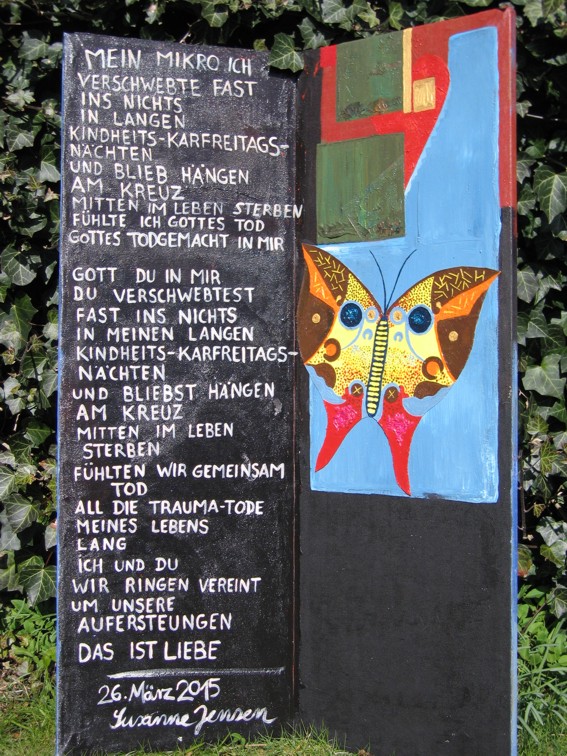 MEIN MIKRO ICH
VERSCHWEBTE FAST
INS NICHTS
IN LANGEN
KINDHEITS-KARFREITAGS-
NÄCHTEN
UND BLIEB HÄNGEN
AM KREUZ
MITTEN IM LEBEN STERBEN
FÜHLTE ICH GOTTES TOD
GOTTES TODGEMACHT IN MIR
GOTT DU IN MIR
DU VERSCHWEBTEST
FAST INS NICHTS
IN MEINEN LANGEN
KINDHEITS-KARFREITAGS-
NÄCHTEN
UND BLIEBST HÄNGEN
AM KREUZ
MITTEN IM LEBEN
STERBEN
FÜHLTEN WIR GEMEINSAM
TOD
ALL DIE TRAUMA-TODE
MEINES LEBENS
LANG
ICH UND DU
WIR RINGEN VEREINT
UM UNSERE
AUFERSTEUNGEN
DAS IST LIEBE
26. MÄRZ 2015
Susanne Jensen